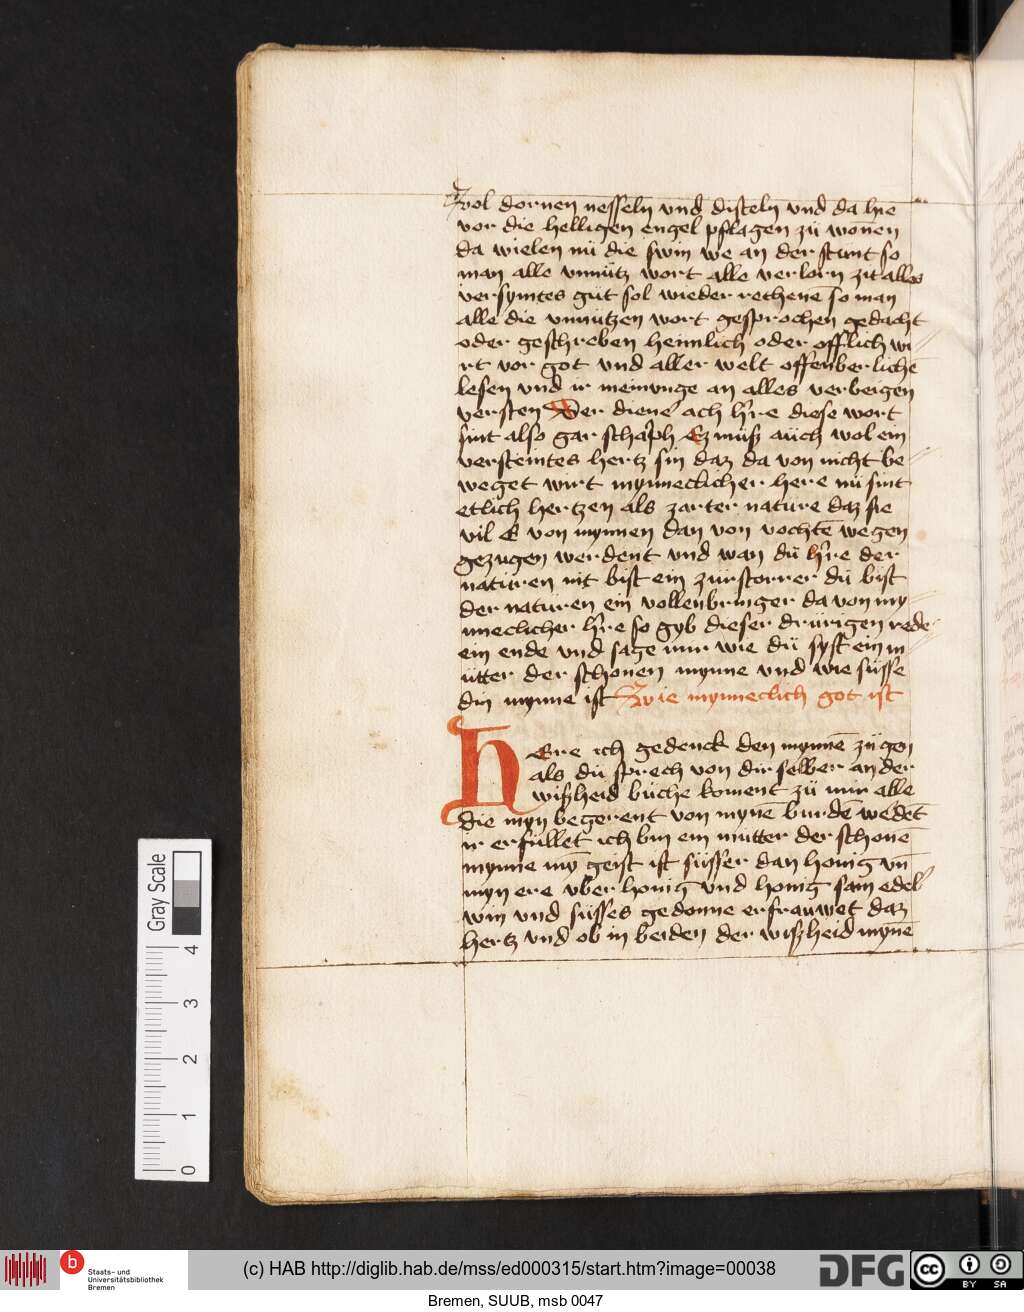 wol dornen nesseln vnd disteln vnd da hie
vor die helligen engel pflagen zü wonen
da wielen nü die swin we an der stunt so
man alle vnnütz wort alle verlorn zit alles
versymtes güt sol wieder rechenē so man
alle die vnnützen wort gesprochen gedacht
oder geschreben heimlich oder offlich wi
rt vor got vnd aller welt offenberliche
lesen vnd ir meinunge an alles verbeigen
versten Der diener ach h're diese wort
sint also gar scharph Ez müß aüch wol ein
versteintes hertz sin daz da von nicht be
weget wirt mynneclicher here nü sint
etlich hertzen als zarter nature daz sie
vil E von mynnen dan von vochtē wegen
gezugen werdent vnd wan dü h're der
natüren nit bist ein zürstorrer dü bist
der natüren ein vollenbringer da von my
nneclicher h're so gyb dieser drürigen rede
ein ende vnd sage mir wie dü syst ein m
ütter der schonen mynne vnd wie süsse
din mynne ist Wie mynneclich got ist
HEre ich gedenck den mynnē zügen
als dü sprech von dir selber an der
wißheid büche koment zü mir alle
die myn begerent von mynē burdē wedēt
ir erfüllet ich bin ein mütter der schonē
mynne mȳ geist ist süsser dan honig vn̄
myn ere vber honig vnd honig sam edel
win vnd süsses gedonne erfrauwet daz
hertz vnd ob in beiden der wißheid mynē
Gray Scale
4
3
2
1
0
b
Staats- und
Universitätsbibliothek
Bremen
(c) HAB http://diglib.hab.de/mss/ed000315/start.htm?image=00038
DFG
cc BY SA
Bremen, SUUB, msb 0047